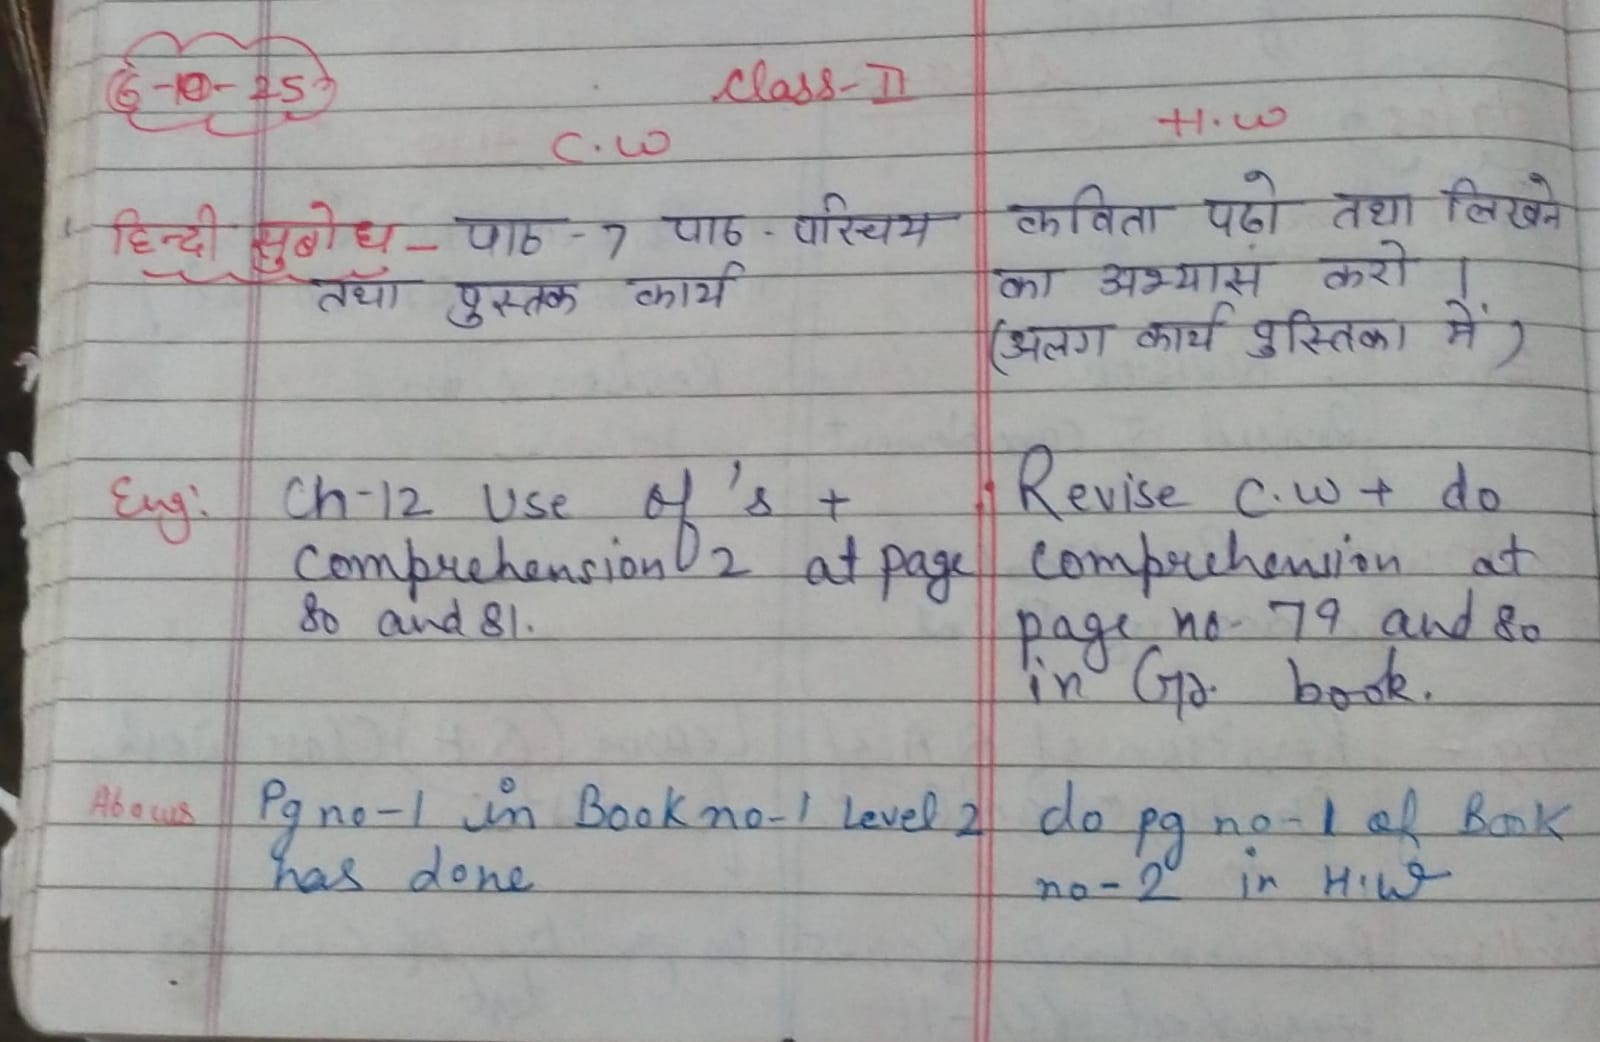 6-10-25
Class-II
C.W
H.W
हिन्दी सुबोध - पाठ - 7 पाठ - परिचय
तथा पुस्तक कार्य
कविता पढो तथा लिखने
का अभ्यास करो ।
(अलग कार्य पुस्तिका में)
Eng:
Ch-12 Use of 's +
Comprehension 2 at page
80 and 81.
Revise C.W + do
comprehension at
page no- 79 and 80
in Gr. book.
Pg no-1 in Book no-1 Level 2
has done
do pg no-1 of Book
no-2 in H.W